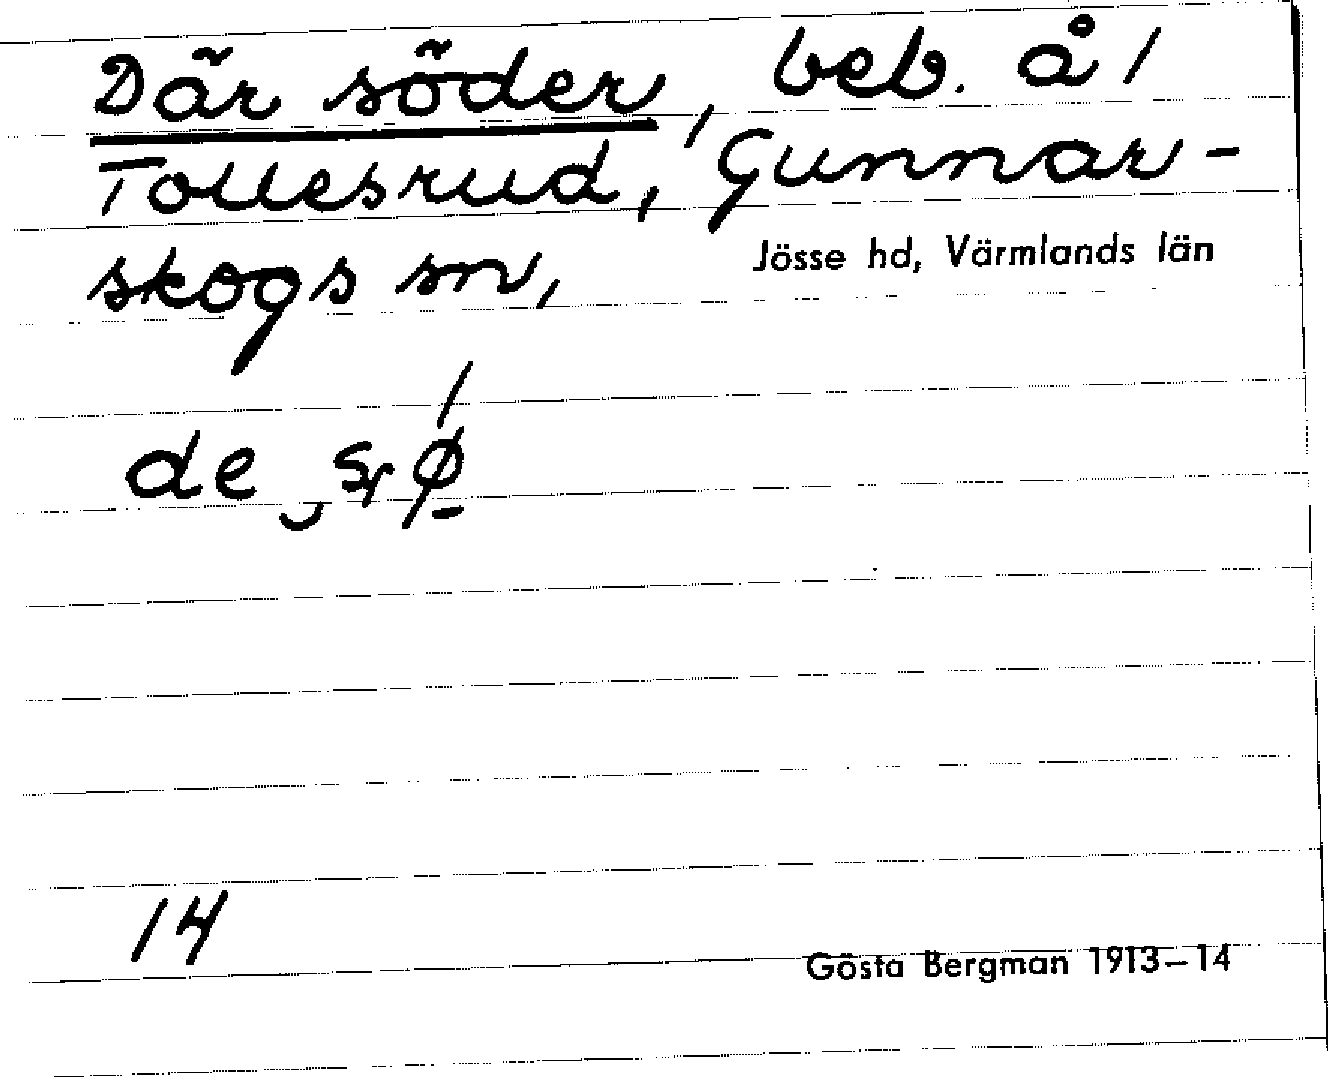 Där söder, beb. å /
Tollesrud, Gunnar-
skogs sn,
Jösse hd, Värmlands län
de
14
Gösta Bergman 1913–14